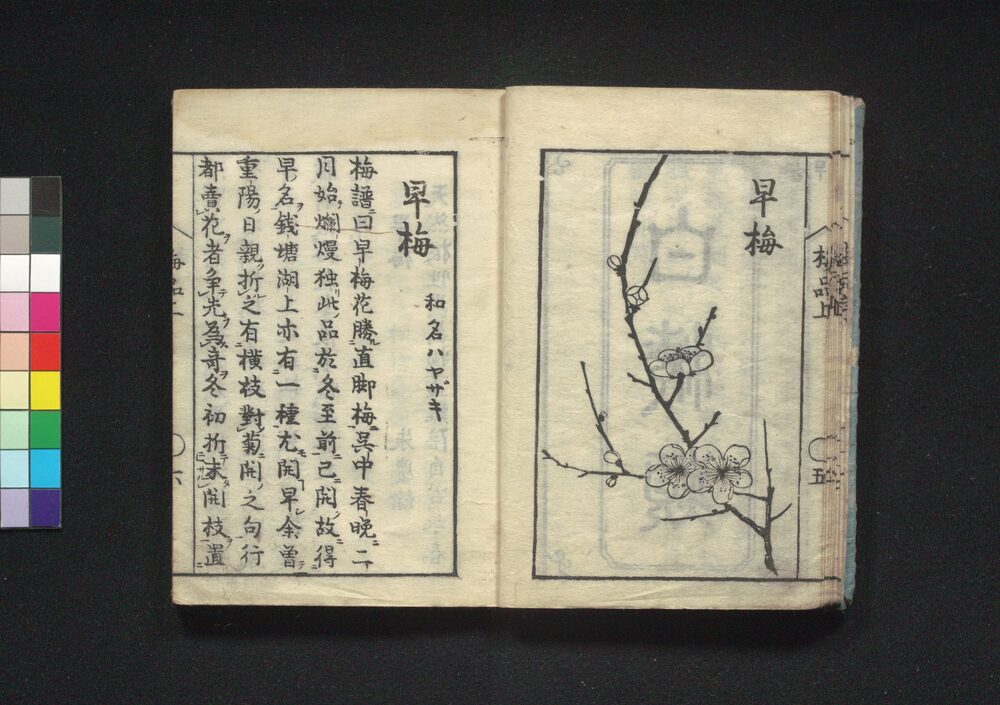 早梅
梅品上
五
早梅
和名ハヤザキ
梅譜曰早梅花勝直脚梅呉中春晩二
月始爛熳独此品於冬至前已開故得
早名銭塘湖上亦有一種尤開早余曽
重陽日親折之有横枝對菊開之句行
都賣花者争先為奇冬初折未開枝置
梅品上
六